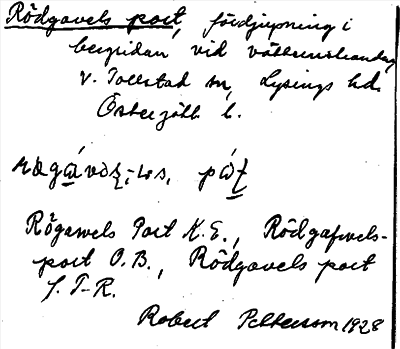 Rödgavels port, fördjupning i
bergsidan vid vätternstranden
V. Tollstad sn, Lysings hd.
Östergötl. l.
Rögawels Port K.E., Rödgafvels-
port O.B., Rödgavels port
J. T-R.
Robert Pettersson 1928